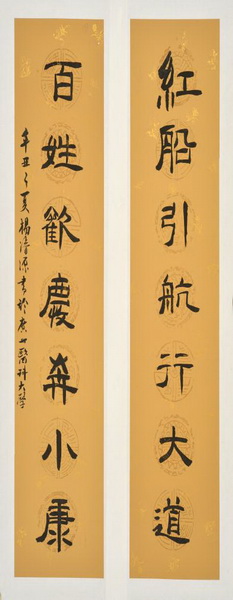 紅船引航行大道
百姓歡慶奔小康
辛丑之夏楊清源書於广西醫科大學